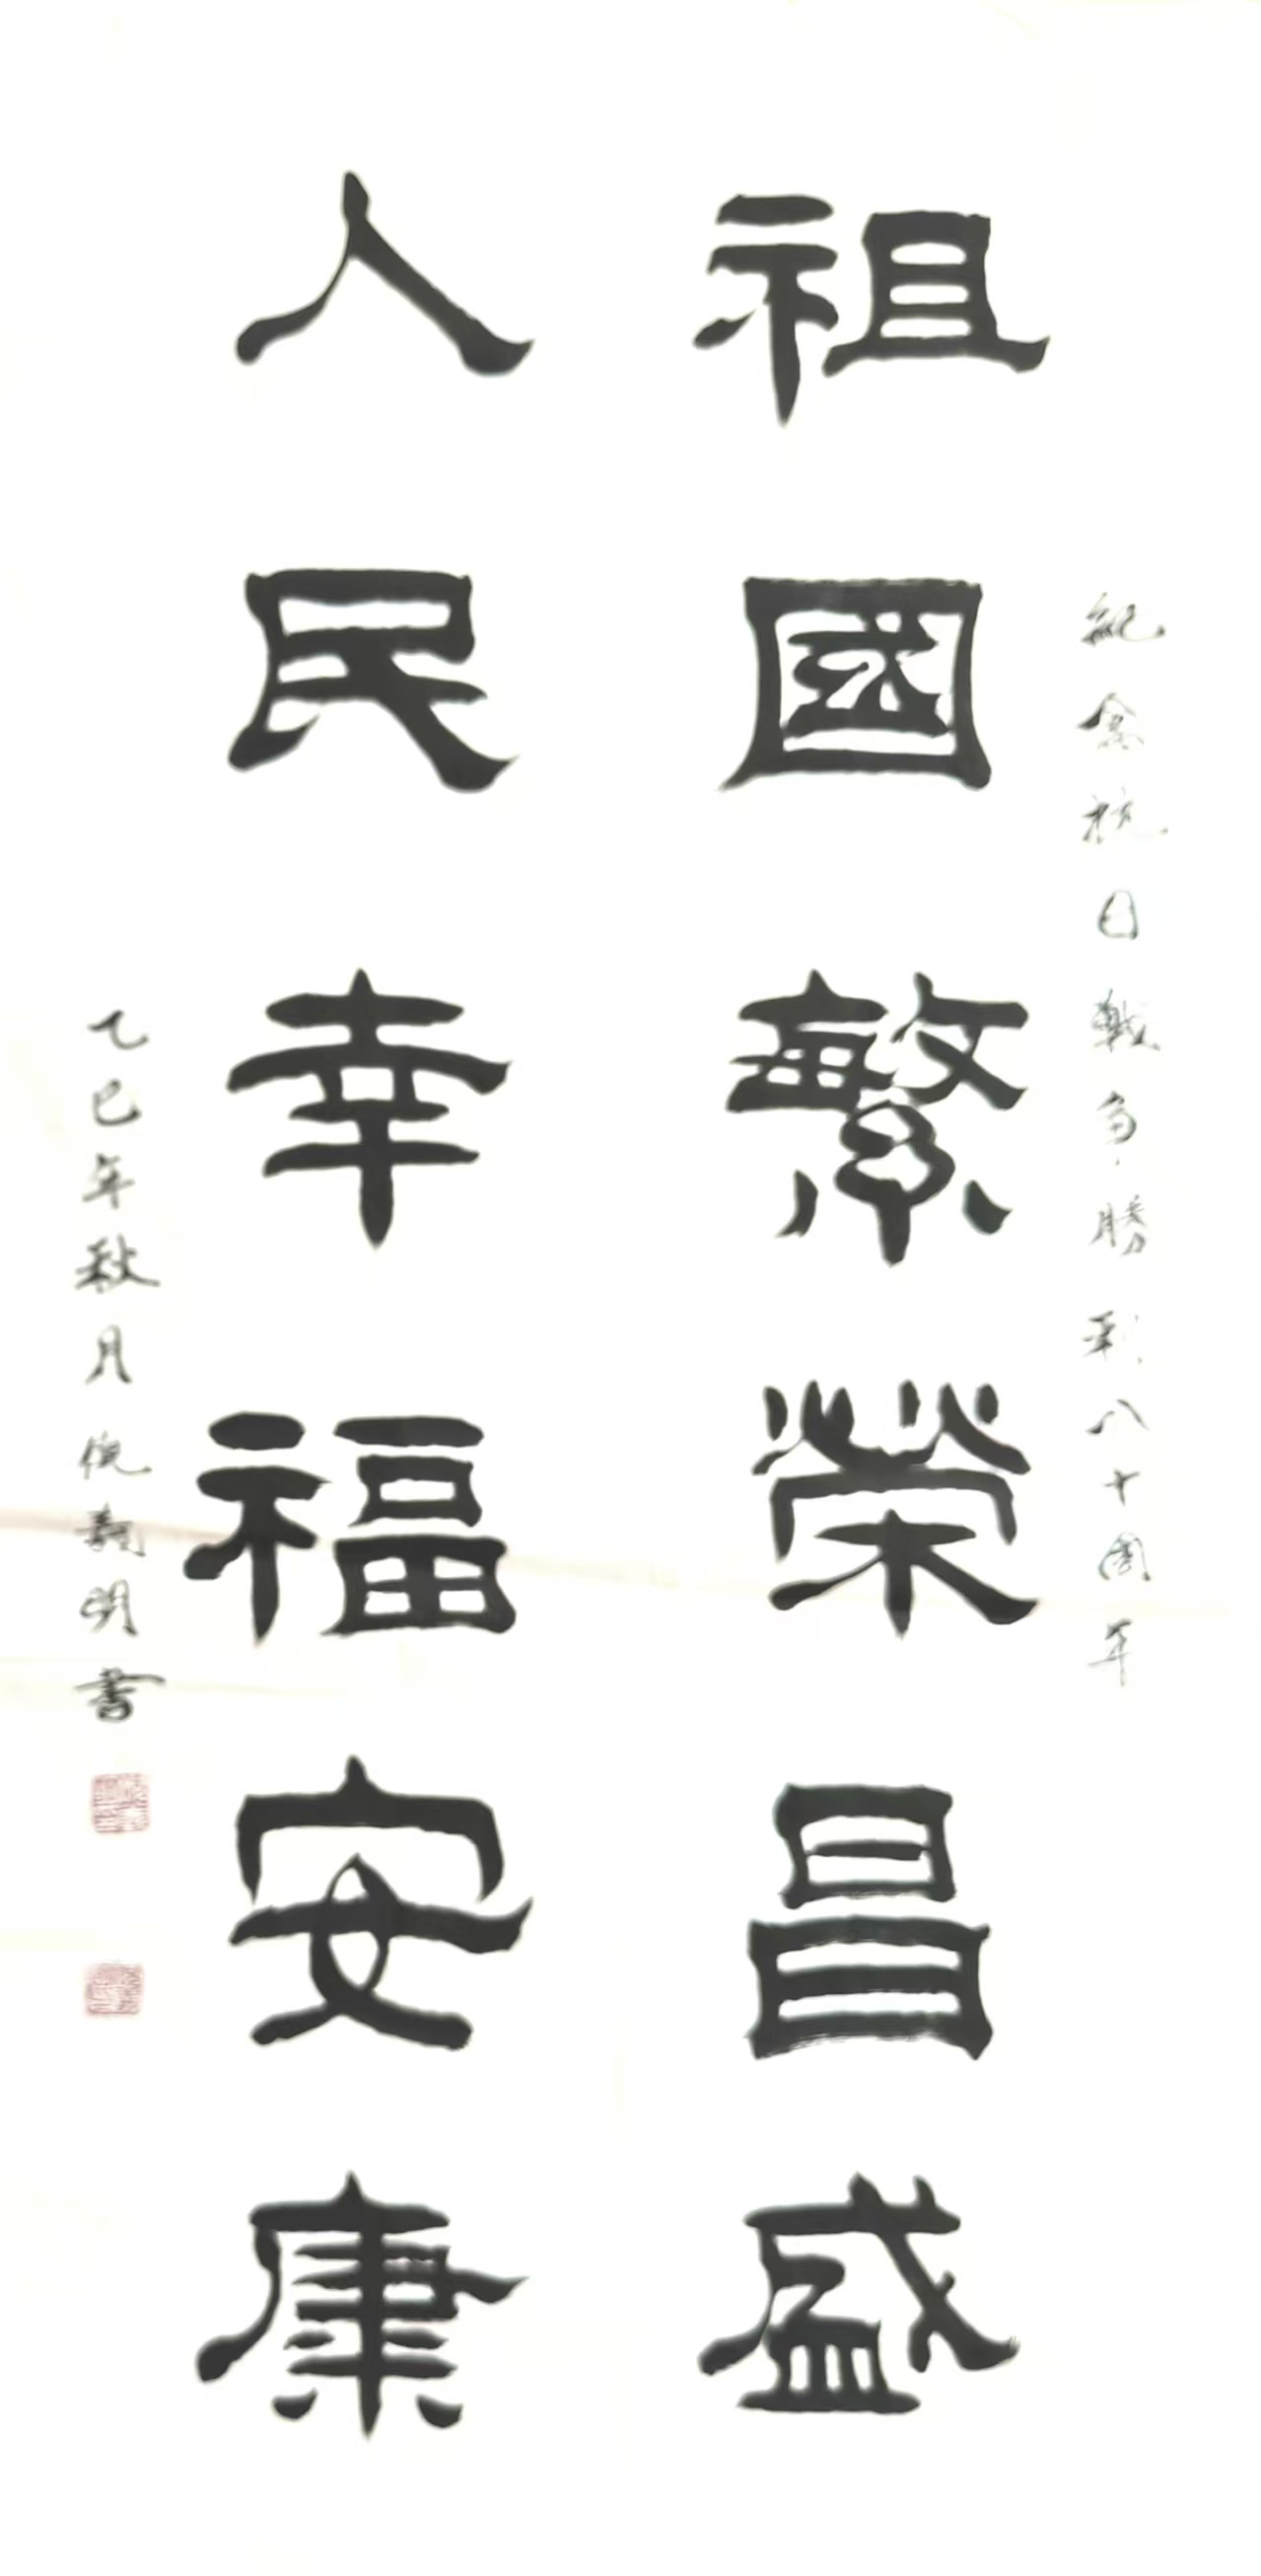 紀念抗日戰爭勝利八十周年
祖國繁榮昌盛
人民幸福安康
乙巳年秋月倪翔明書